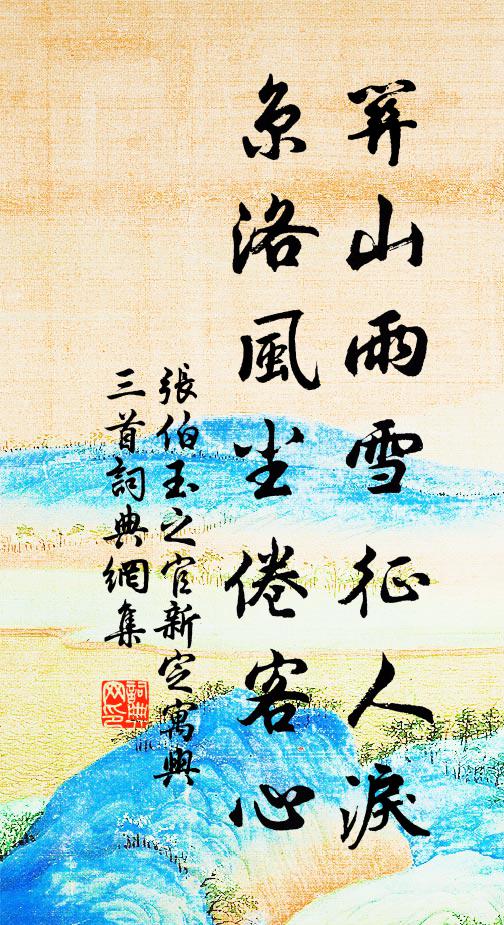 関山雨雪征人淚
京洛風尘倦客心
張伯玉之官新定寓興
三首詞典網集
詞典网印